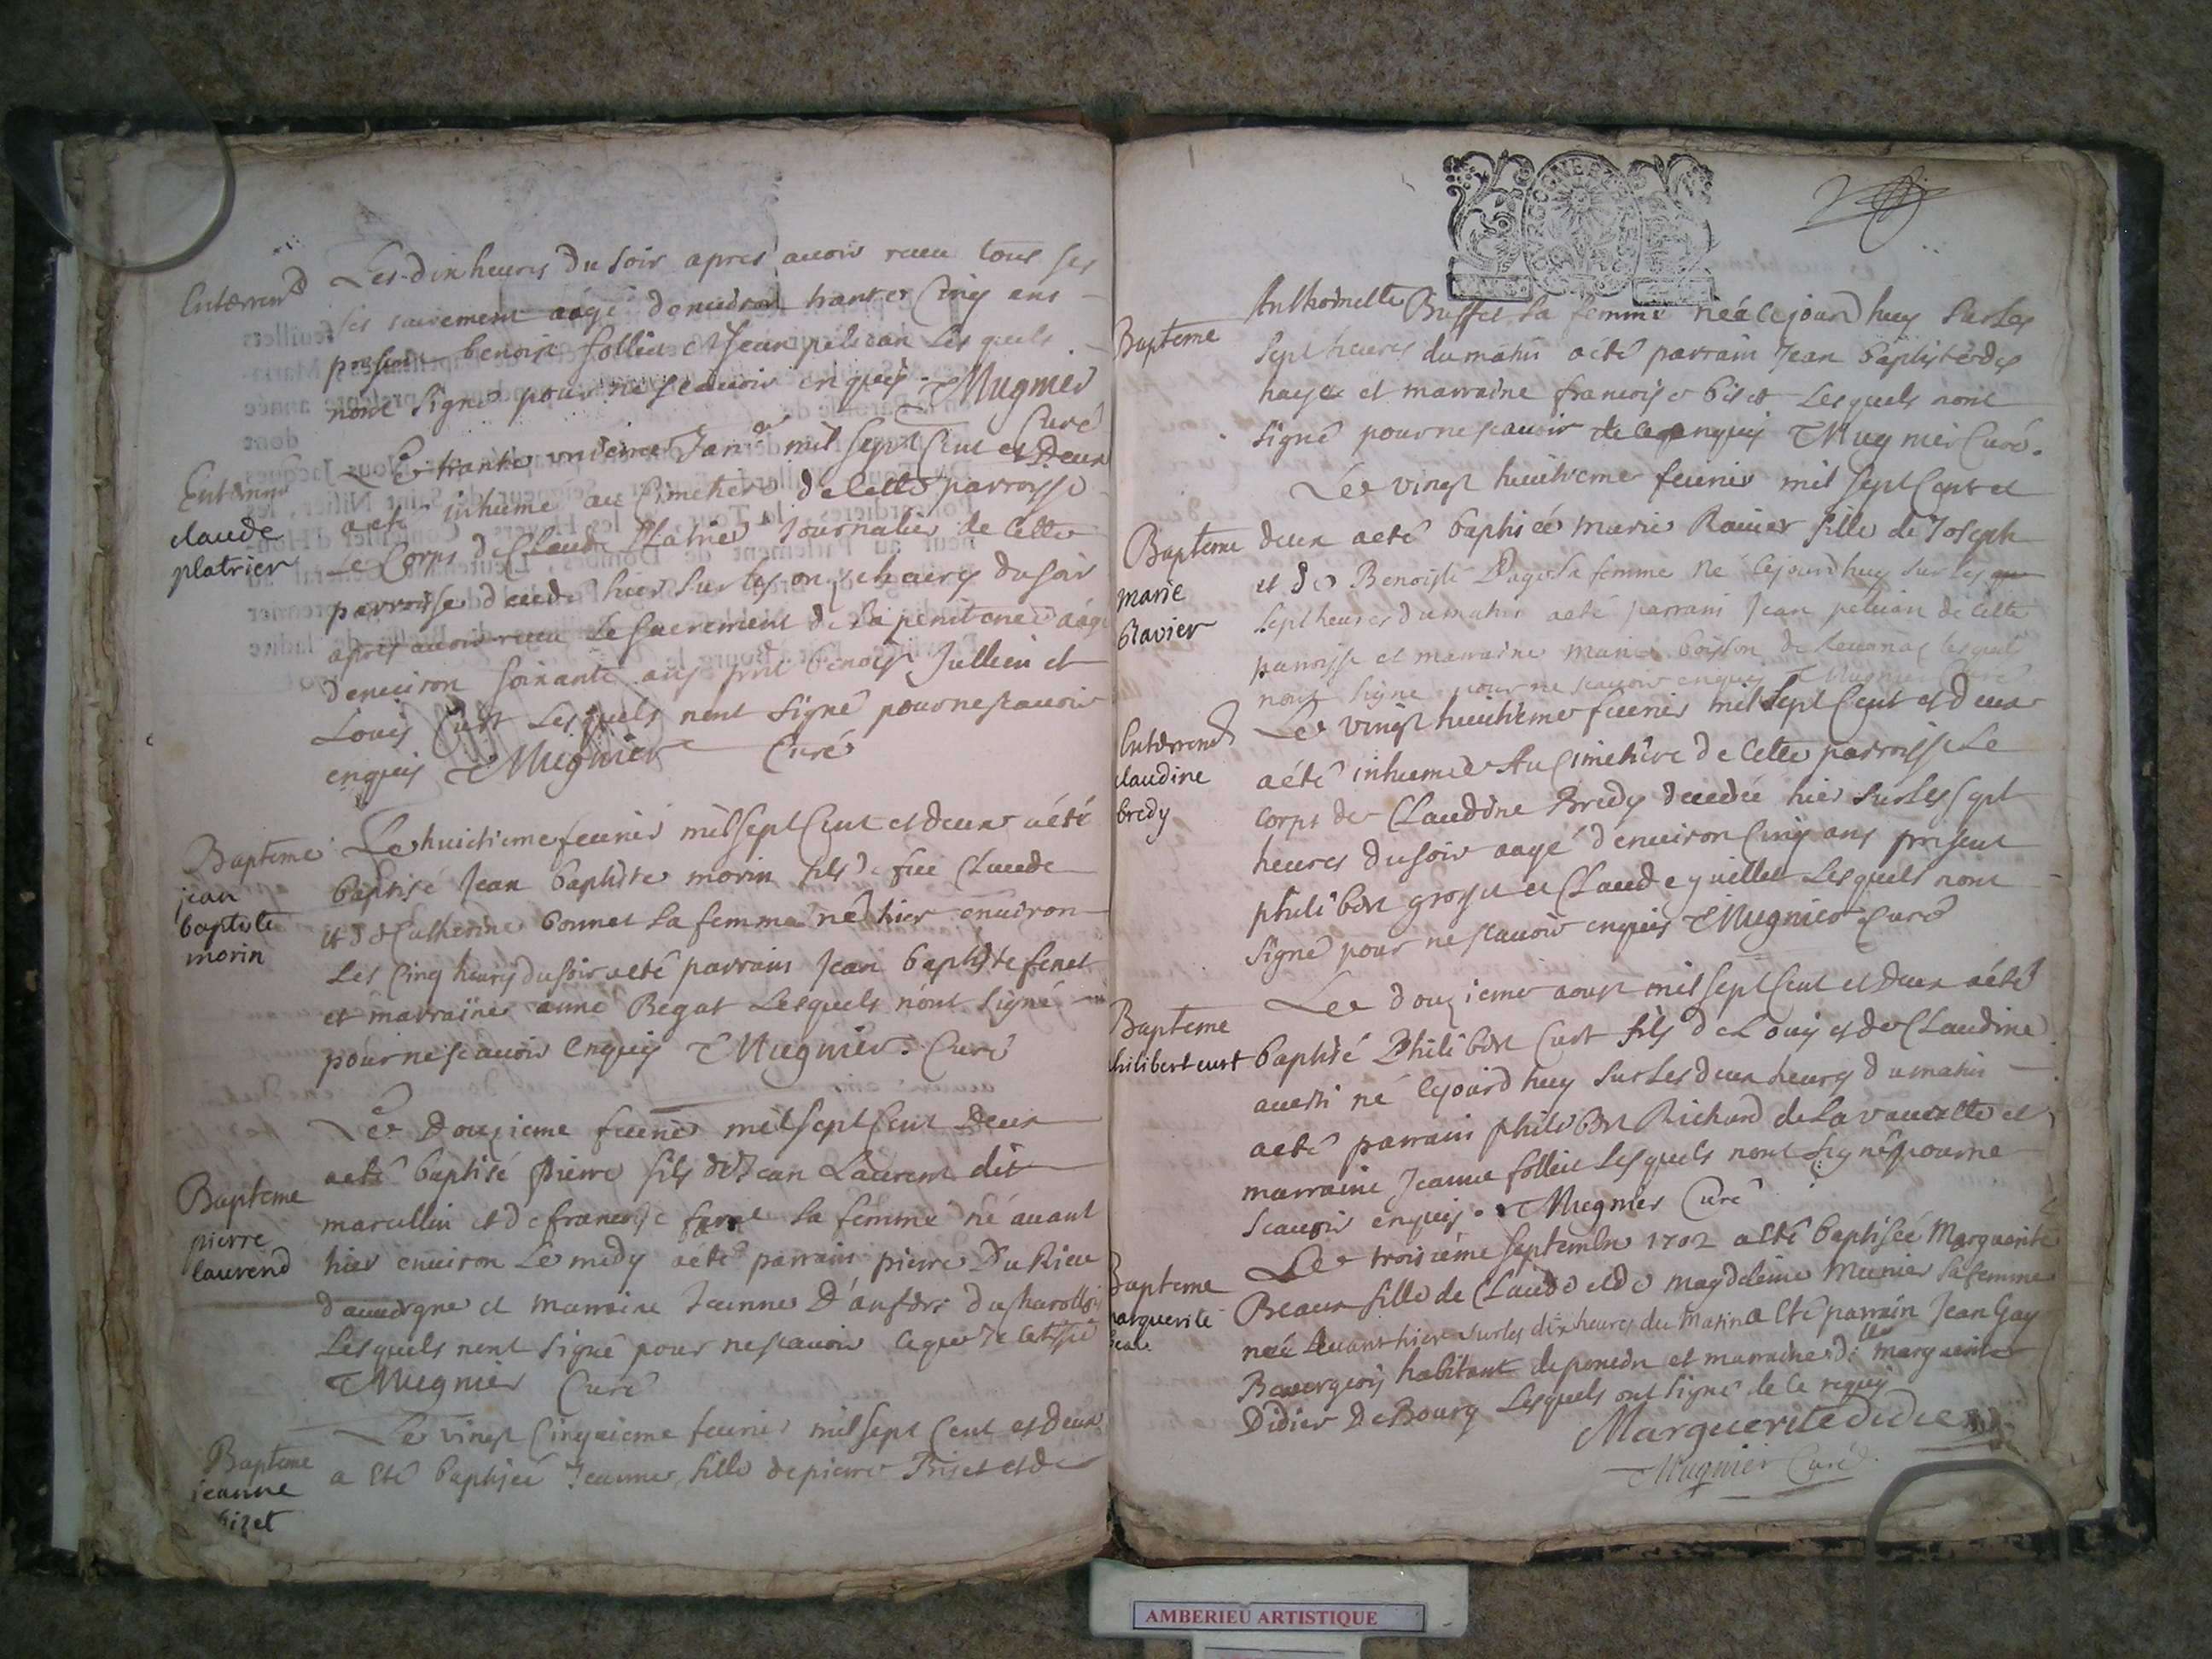 Enterrem
Les dix heures du soir apres avoir receu tous ses
ses sacrement aagé denviron trante Cinq ans
present benoist follieu et Jean pelican Les quels
nont signé pour ne scavoir enquis. Mugnier
Curé
Enterrem
claude
platrier
Le trante unieme Janv mil sept Cent et Deux
a eté inhumé au Cimetiere de Cette parroisse
Le Corps de Claude Platrier Journalier de Cette
parroisse decedé hier sur les onze heures du soir
apres avoir receu Le Sacrement de La penitence aagé
denviron soixante ans pnt benoist Jullien et
Louis Curt Lesquels nont signé pour ne scavoir
enquis Mugnier Curé
Bapteme
jean
baptiste
morin
Le huictieme feuvrier mil sept Cent et deux a été
baptisé Jean baptiste morin fils de feu Claude
et de Catherine bonnet sa femme né hier environ
Les Cinq heures du soir a eté parrain Jean baptiste fenet
et marraine anne Begat Lesquels nont signé
pour ne scavoir enquis Mugnier. Curé
Bapteme
pierre
laurend
Le Douzieme feuvrier mil sept Cent Deux
a eté baptisé pierre fils de Jean Laurent dit
marcellin et de francoise sa femme né avant
hier environ Le midy a eté parrain pierre Du Rieu
dauvergne et marraine Jeanne
Lesquels nont signé pour ne scavoir ce que Je Certifie
Mugnier Curé
Bapteme
jeanne
bizet
Le vingt Cinquieme feuvrier mil sept Cent et deux
a Eté baptiseé Jeanne fille de pierre Biset et de
Bapteme
Anthoinette Buffet sa femme neé Cejourdhuy sur Les
sept heures du matin a eté parrain Jean baptiste des
hayes et marraine francoise biset Lesquels nont
signé pour ne scavoir enquis Mugnier Curé.
Bapteme
marie
Ravier
Le vingt huictieme feuvrier mil sept Cent et
deux a eté baptiseé marie Ravier fille de Joseph
et de Benoiste Page sa femme né Cejourdhuy sur Les
sept heures du matin a eté parrain Jean pelican de Cette
parroisse et marraine marie boisson de Lesquels
nont signé pour ne scavoir enquis Mugnier Curé
Enterrem
claudine
bredy
Le vingt huictieme feuvrier mil sept Cent et deux
a été inhumeé Au Cimetiere de Cette parroisse Le
corps de Claudine Bredy decedée hier sur Les sept
heures du soir aagé denviron Cinq ans present
philibert grosset et Claude guillet Lesquels nont
signé pour ne scavoir enquis Mugnier Curé
Bapteme
philibert curt
Le douzieme aoust mil sept Cent et deux a eté
baptisé Philibert Curt fils de Louis et de Claudine
né Cejourdhuy sur Les deux heures du matin
a eté parrain philibert Richard de La vavrette et
marraine Jeanne follieu Lesquels nont signé pour ne
scavoir enquis. Mugnier Curé
Bapteme
marguerite
beaux
Le troisiéme septembre 1702 a Eté baptisée Marguerite
Beaux fille de Claude et de magdeleine Meunier sa femme
neé Avant hier sur les dix heures du Matin a Eté parrain Jean Gay
Bourgeois habitant de poncin et marraine dlle marguerite
Didier De Bourg Lesquels ont signé de Ce requis
Marguerite didier
Mugnier Curé.
AMBERIEU ARTISTIQUE